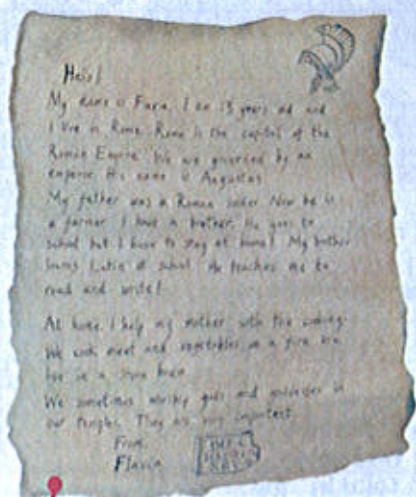 Hello!
My name is I am 13 years old and
I live in Rome. Rome is the capital of the
Roman Empire. We are governed by an
emperor. His name is Augustus.
My father was a Roman soldier. Now he is
a farmer. I have a brother. He goes to
school but I have to stay at home! My brother
learns Latin at school. He teaches me to
read and write!
At home I help my mother with the cooking.
We cook meat and vegetables on a fire. We
live in a house.
We sometimes worship gods and goddesses in
our temples. They are very important.
From,
Flavia